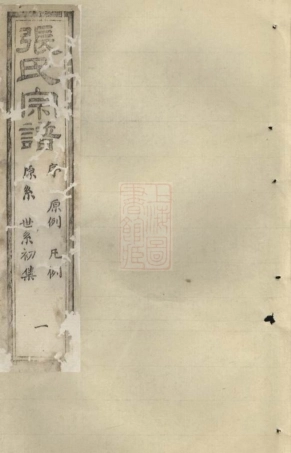 張氏宗譜
序 原例 凡例
原系 世系初集
一
上海圖書館藏